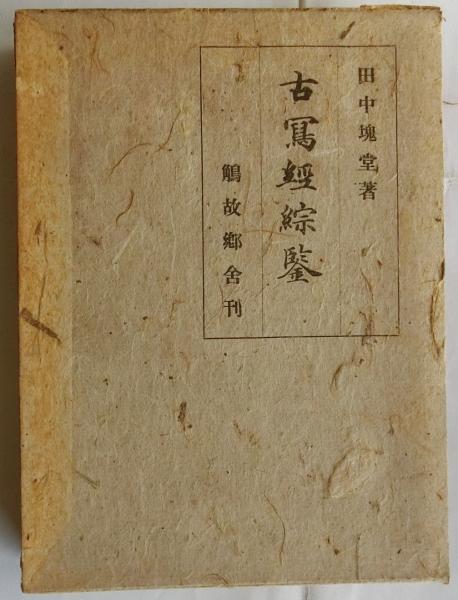 田中塊堂著
古冩經綜鑒
鵤故郷舍刊